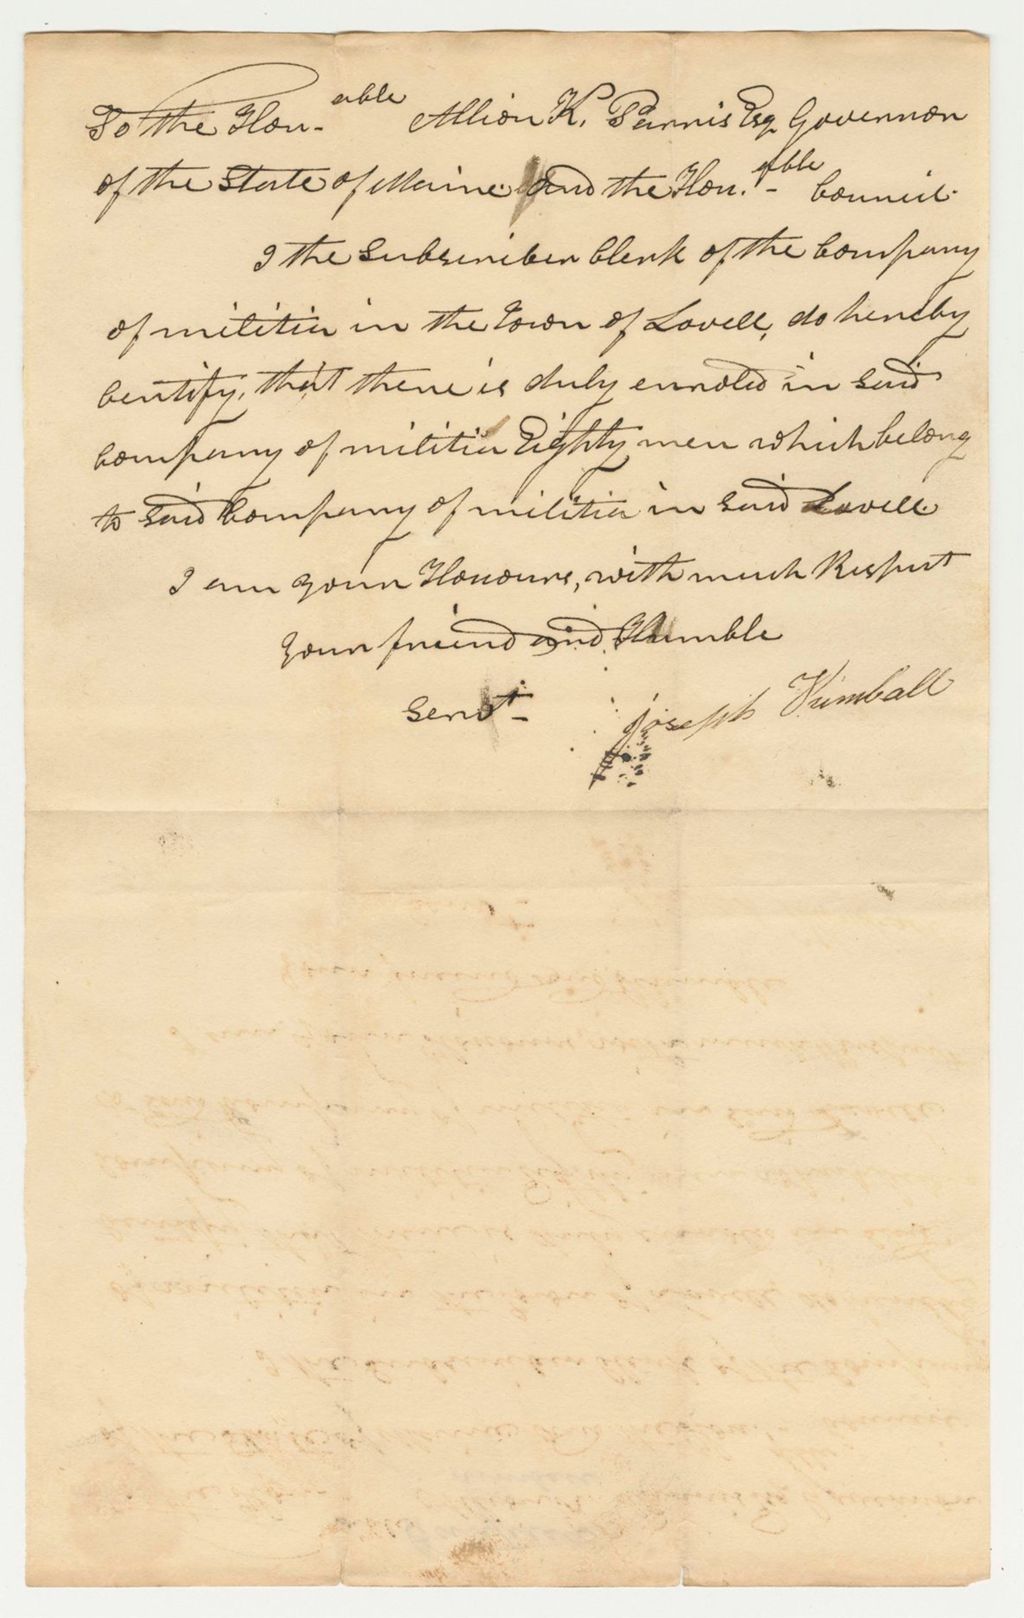 To the Hon-able Albion K. Parris Esq Governor
of the State of Maine and the Hon.-able Council.
I the Subscriber Clerk of the Company
of militia in the Town of Lovell, do hereby
Certify, that there is duly enroled in Said
Company of militia Eighty men which belong
to Said Company of militia in Said Lovell
I am your Honours, with much Respect
your friend and Humble
Servt-
Joseph Kimball